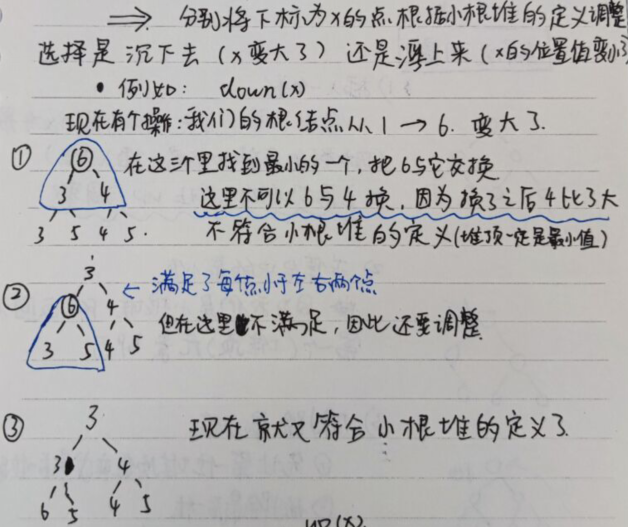 ⇒ 分别将下标为x的点根据小根堆的定义调整
选择是沉下去(x变大了)还是浮上来(x的位置值变小了
• 例如: down(x)
现在有个操作:我们的根结点从1→6.变大了.
① 6 在这三个里找到最小的一个,把6与它交换
3 4 这里不可以6与4换,因为换了之后4比3大
3 5 4 5. 不符合小根堆的定义(堆顶一定是最小值)
3
② ← 满足了每个点小于左右两个点
6 4 但在这里不满足,因此还要调整
3 5 4 5
③ 3 现在就又符合小根堆的定义了
3 4
6 5 4 5
up(x)